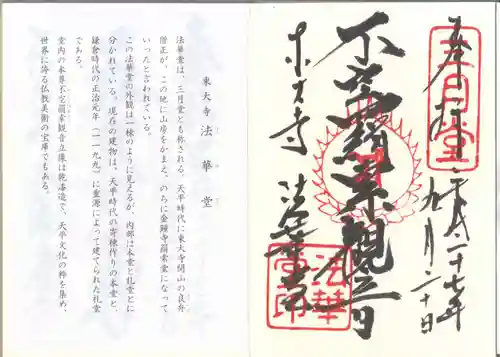 奉拝
三月堂
平成二十七年
九月二十日
不空羂索観音
東大寺
法華堂
法華堂印
東大寺 法華堂
法華堂は、三月堂とも称される。天平時代に東大寺開山の良弁
僧正が、この地に山房をかまえ、のちに金鐘寺羂索堂になって
いったと言われている。
この法華堂の外観は一棟のように見えるが、内部は本堂と礼堂とに
分かれている。現在の建物は、天平時代の寄棟作りの本堂と、
鎌倉時代の正治元年(一一九九)に重源によって建てられた礼堂
である。
堂内の本尊不空羂索観音立像は乾漆造で、天平文化の粋を集め、
世界に誇る仏教美術の宝庫でもある。